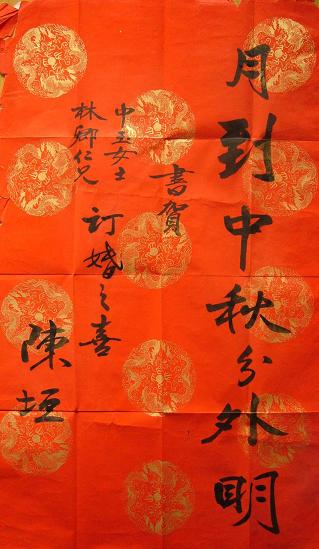 月到中秋分外明
書賀
中玉女士
林卿仁兄
訂婚之喜
陳垣